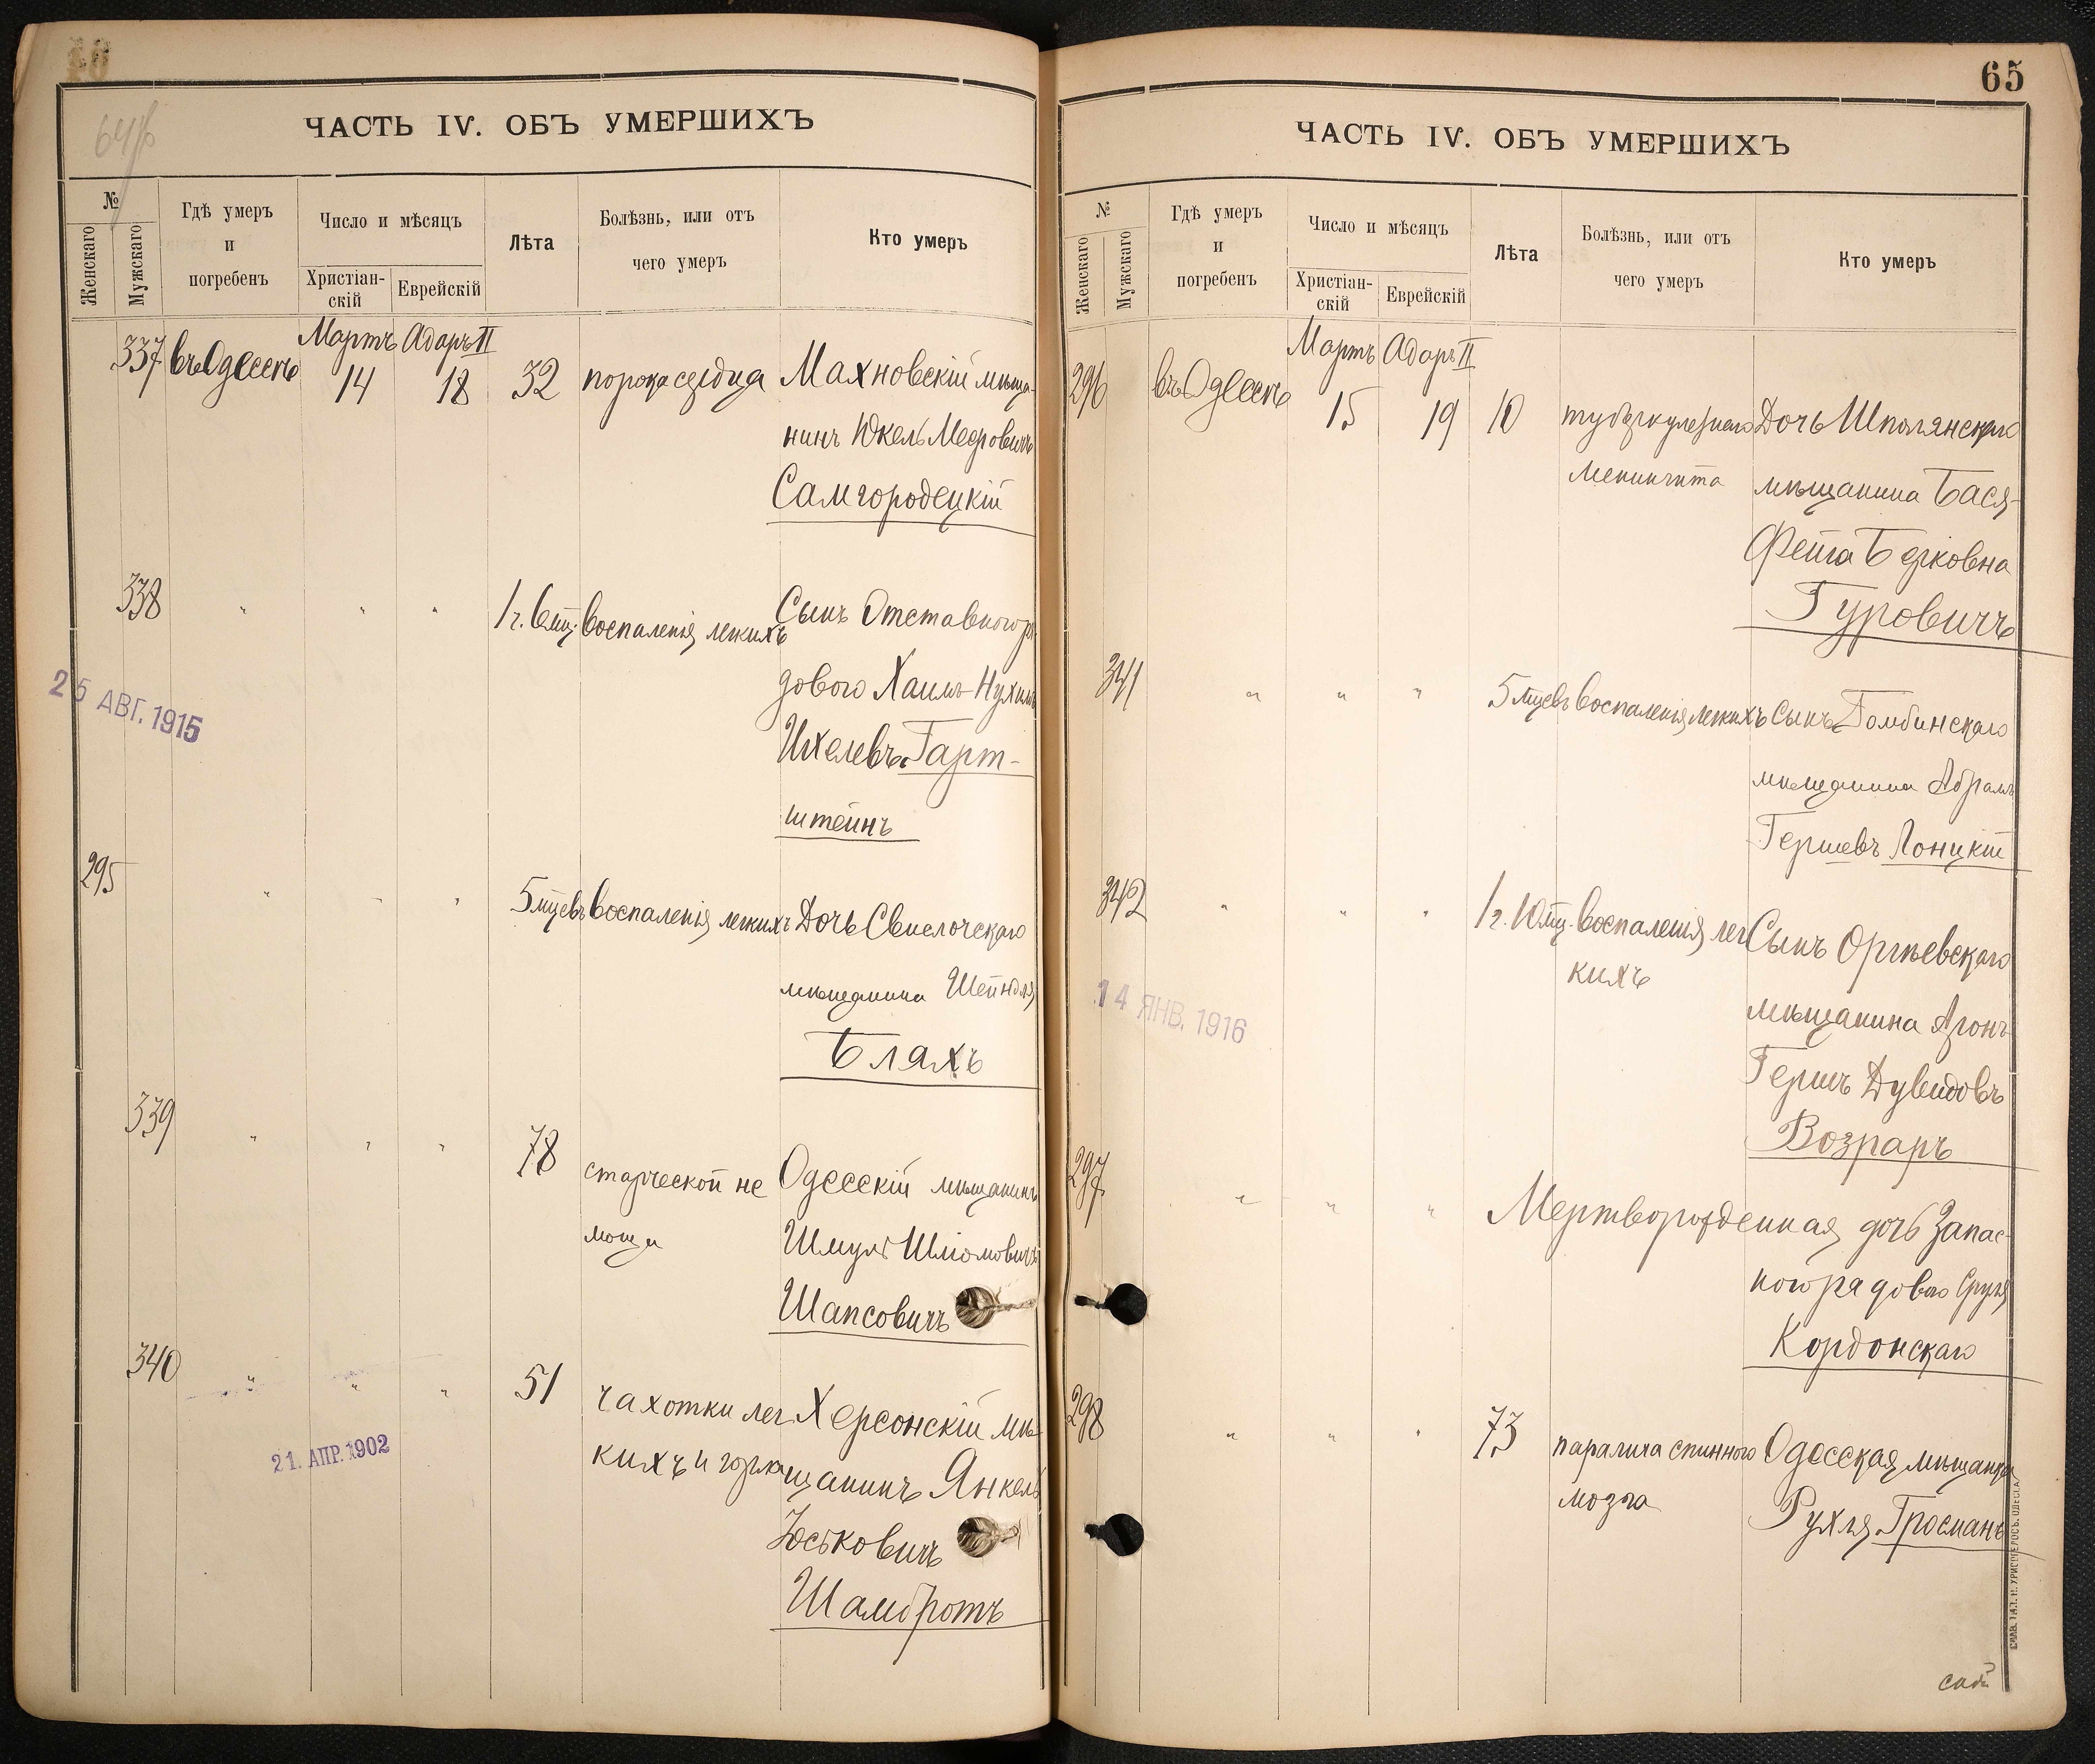 64об
ЧАСТЬ IV. ОБЪ УМЕРШИХЪ
№
Женскаго
Мужскаго
Гдѣ умеръ
и
погребенъ
Число и мѣсяцъ
Христіан-
скій
Еврейскій
Лѣта
Болѣзнь, или отъ
чего умеръ
Кто умеръ
Мартъ Адаръ II
337 въ Одессѣ 14 18 32 порока сердца Махновскій мѣща-
нинъ Юкель Мееровичъ
Самгородецкій
338 " " " 1 г. 6 мц. воспаленія легкихъ Сынъ Отставного ря
дового Хаимъ-Нухимъ
Ихелевъ Гарт-
штейнъ
25 АВГ. 1915
295 " " " 5 мцевъ воспаленія легкихъ Дочь Свислочскаго
мѣщанина Шейндля
Бляхъ
339 " " " 78 старческой не Одесскій мѣщанинъ
мощи Шмуль Шліомовичъ
Шапсовичъ
340 " " " 51 чахотки лег Херсонскій мѣ-
кихъ и горла щанинъ Янкель
Юськовичъ
Шамбротъ
21. АПР. 1902
65
ЧАСТЬ IV. ОБЪ УМЕРШИХЪ
№
Женскаго
Мужскаго
Гдѣ умеръ
и
погребенъ
Число и мѣсяцъ
Христіан-
скій
Еврейскій
Лѣта
Болѣзнь, или отъ
чего умеръ
Кто умеръ
Мартъ Адаръ II
296 въ Одессѣ 15 19 10 туберкулезнаго Дочь Шполянскаго
менингита мѣщанина Бася-
Фейга Берковна
Гуровичъ
341 " " " 5 мцевъ воспаленія легкихъ Сынъ Домбинскаго
мѣщанина Абрамъ
Гершевъ Лонцкій
342 " " " 1 г. 10 мц. воспаленія лег Сынъ Оргѣевскаго
кихъ мѣщанина Аронъ
Гершъ Дувидовъ
Возраръ
14 ЯНВ. 1916
297 " " " Мертворожденная дочь Запас-
ного рядового Сруля
Кордонскаго
298 " " " 73 паралича спинного Одесская мѣщанка
мозга Рухля Гросманъ